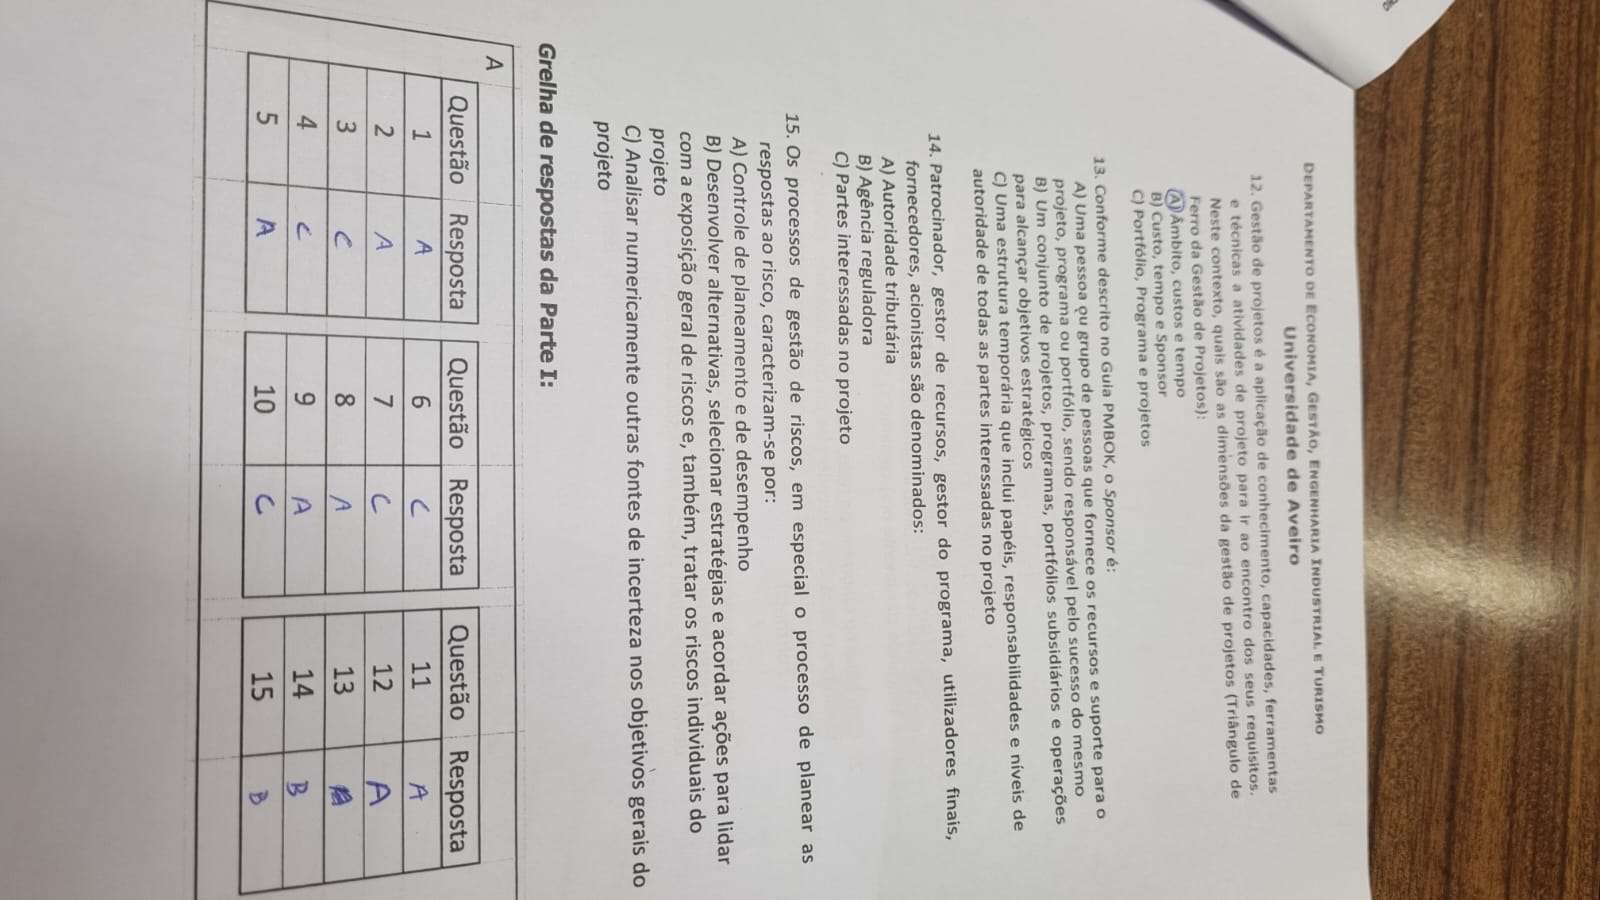 Departamento de Economia, Gestão, Engenharia Industrial e Turismo
Universidade de Aveiro
12. Gestão de projetos é a aplicação de conhecimento, capacidades, ferramentas
e técnicas a atividades de projeto para ir ao encontro dos seus requisitos.
Neste contexto, quais são as dimensões da gestão de projetos (Triângulo de
Ferro da Gestão de Projetos):
A) Âmbito, custos e tempo
B) Custo, tempo e Sponsor
C) Portfólio, Programa e projetos
13. Conforme descrito no Guia PMBOK, o Sponsor é:
A) Uma pessoa ou grupo de pessoas que fornece os recursos e suporte para o
projeto, programa ou portfólio, sendo responsável pelo sucesso do mesmo
B) Um conjunto de projetos, programas, portfólios subsidiários e operações
para alcançar objetivos estratégicos
C) Uma estrutura temporária que inclui papéis, responsabilidades e níveis de
autoridade de todas as partes interessadas no projeto
14. Patrocinador, gestor de recursos, gestor do programa, utilizadores finais,
fornecedores, acionistas são denominados:
A) Autoridade tributária
B) Agência reguladora
C) Partes interessadas no projeto
15. Os processos de gestão de riscos, em especial o processo de planear as
respostas ao risco, caracterizam-se por:
A) Controle de planeamento e de desempenho
B) Desenvolver alternativas, selecionar estratégias e acordar ações para lidar
com a exposição geral de riscos e, também, tratar os riscos individuais do
projeto
C) Analisar numericamente outras fontes de incerteza nos objetivos gerais do
projeto
Grelha de respostas da Parte I:
A
Questão Resposta Questão Resposta Questão Resposta
1 A 6 C 11 A
2 A 7 C 12 A
3 C 8 A 13
4 C 9 A 14 B
5 A 10 C 15 B